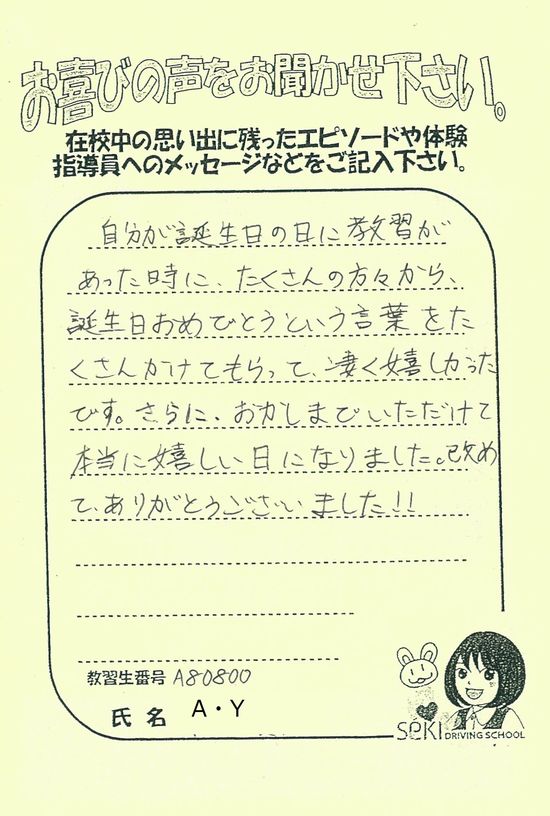 お喜びの声をお聞かせ下さい。
在校中の思い出に残ったエピソードや体験
指導員へのメッセージなどをご記入下さい。
自分が誕生日の日に教習が
あった時に、たくさんの方々から、
誕生日おめでとうという言葉をた
くさんかけてもらって、凄く嬉しかった
です。さらに、おかしまでいただけて
本当に嬉しい日になりました。改め
て、ありがとうございました!!
教習生番号 A80800
氏名 A・Y
SEKI DRIVING SCHOOL